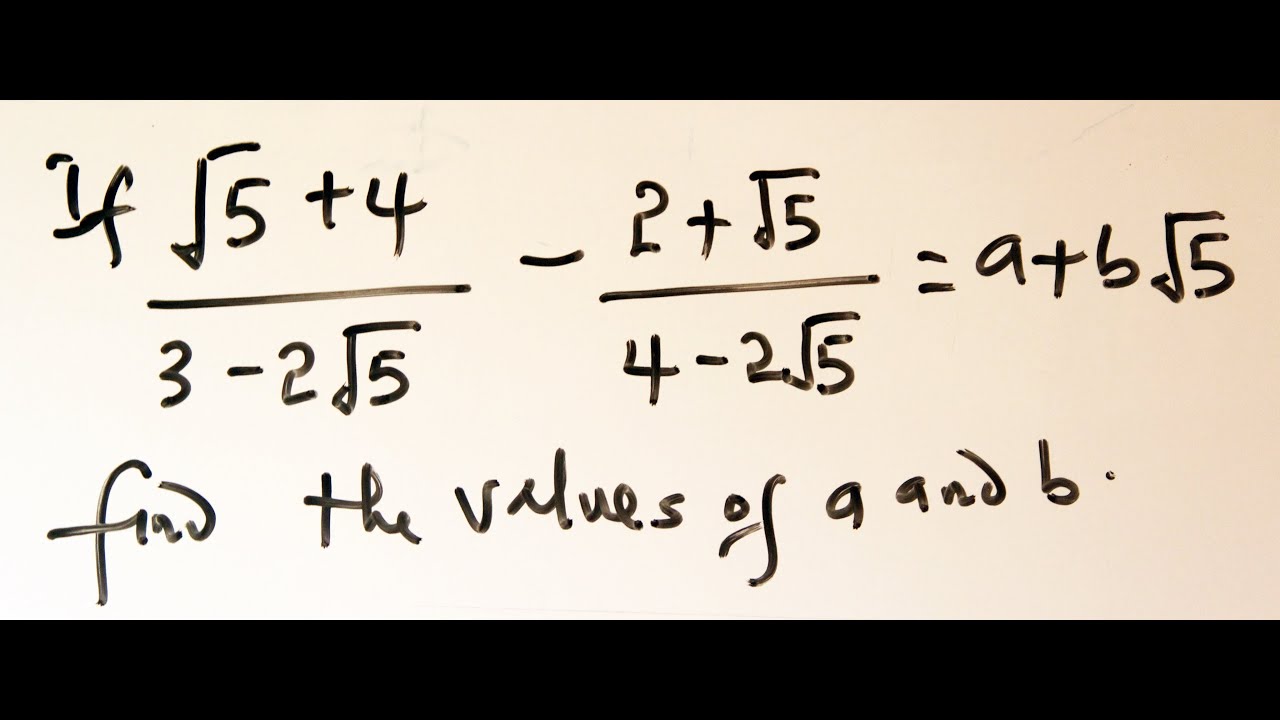 If (√5 + 4)/(3 - 2√5) - (2 + √5)/(4 - 2√5) = a + b√5
find the values of a and b.